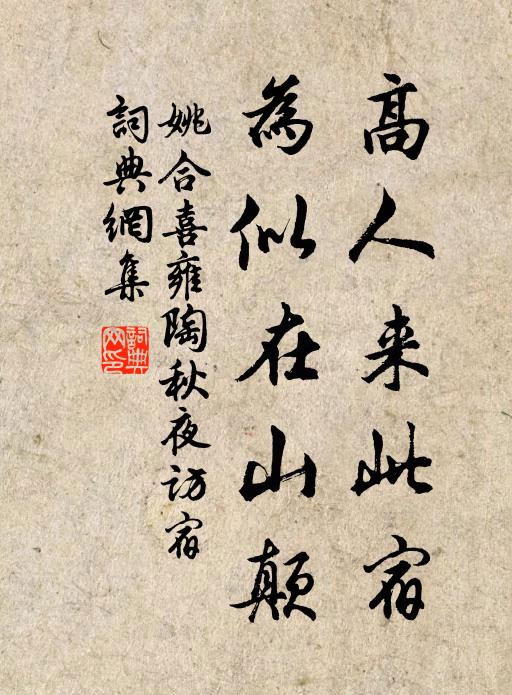 高人来此宿
為似在山顛
姚合喜雍陶秋夜访宿
詞典網集
詞典
网印